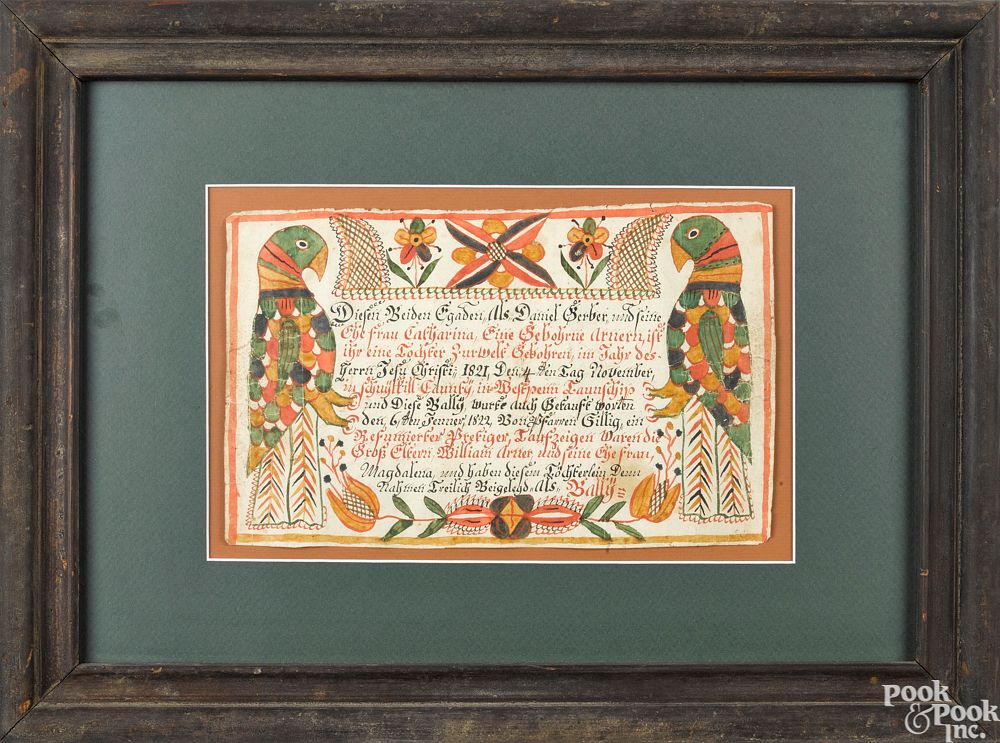 Diesen Beiden Egaden, Als, Daniel Gerber, und seine
Ehe frau Catharina, Eine Gebohrne Arnern, ist
ihr eine Tochter Zur Welt Gebohren, im Jahr des
Herrn Jesu Christi; 1821, Den 4 ten Tag November,
in schuylkill Caunty, in Westpenn Taunschip
und Diese Bally, wurte auch Getauft worten
den, 6, ten Jenner, 1822, Von Pfarren Gillig, ein
Refurmierter Pretiger, Taufzeigen Waren die
Groß Eltern William Arner, und seine Ehe frau,
Magdalena, und haben diesem Töchterlein Denn
Nahmen Treilich Beigelegd, Als, Bally=
Pook
& Pook
Inc.